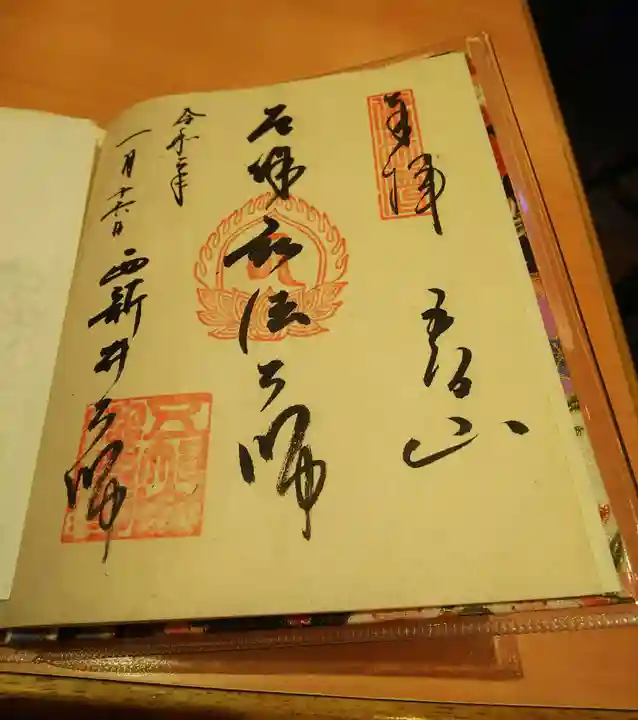 奉拝　五智山
厄除弘法大師
令和二年
一月十六日　西新井大師